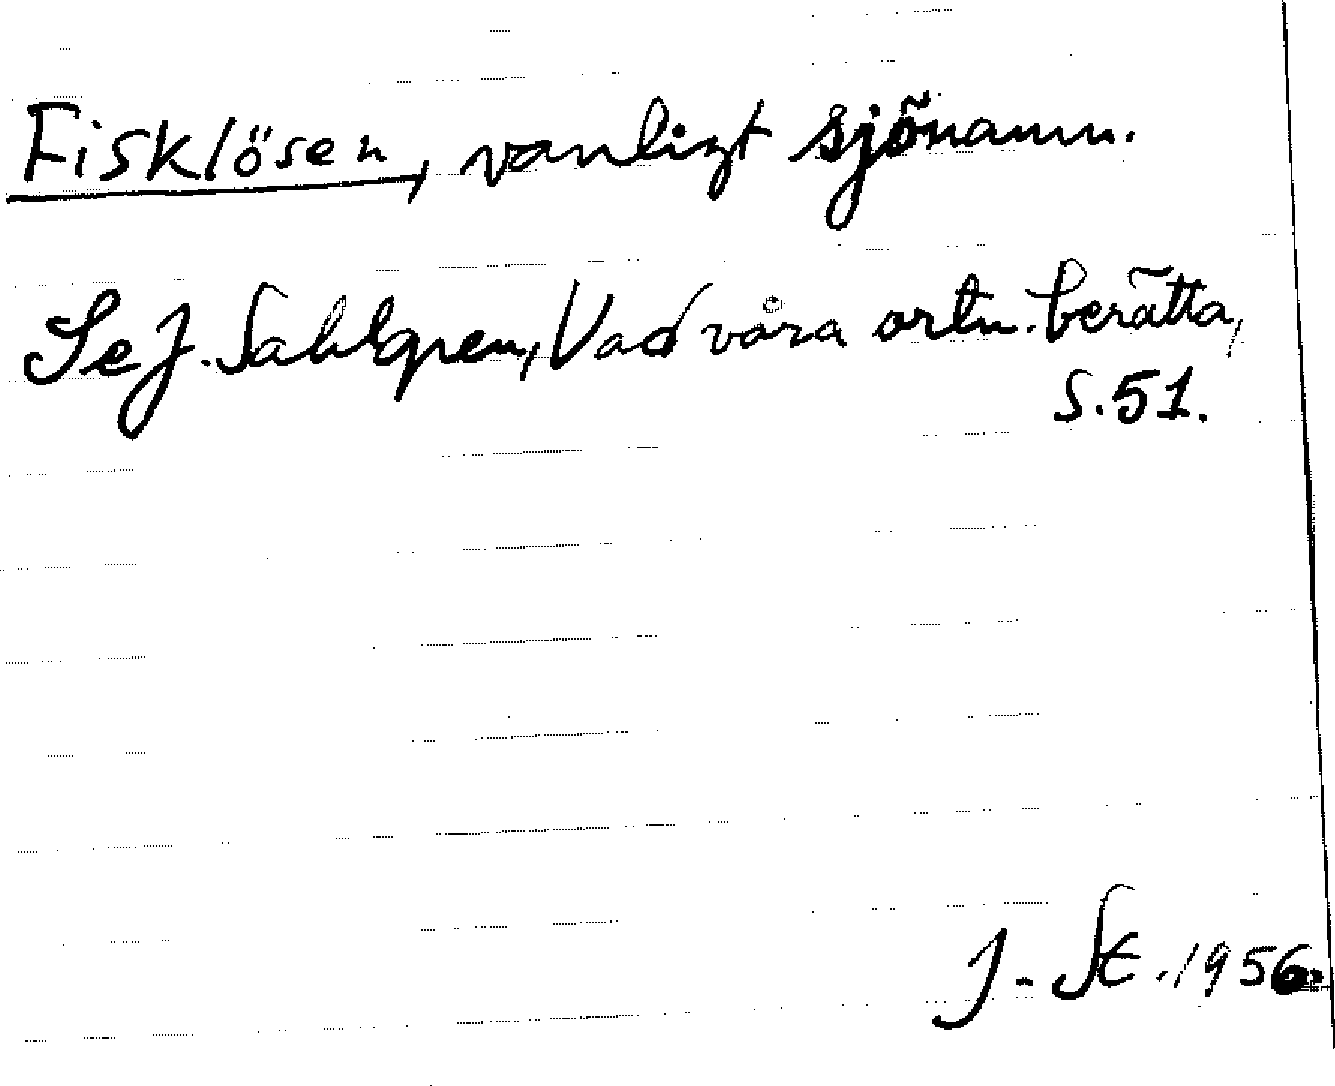 Fisklösen, vanligt sjönamn.
Se J. Sahlgren, Vad våra ortn. berätta,
s. 51.
J. St. 1956.